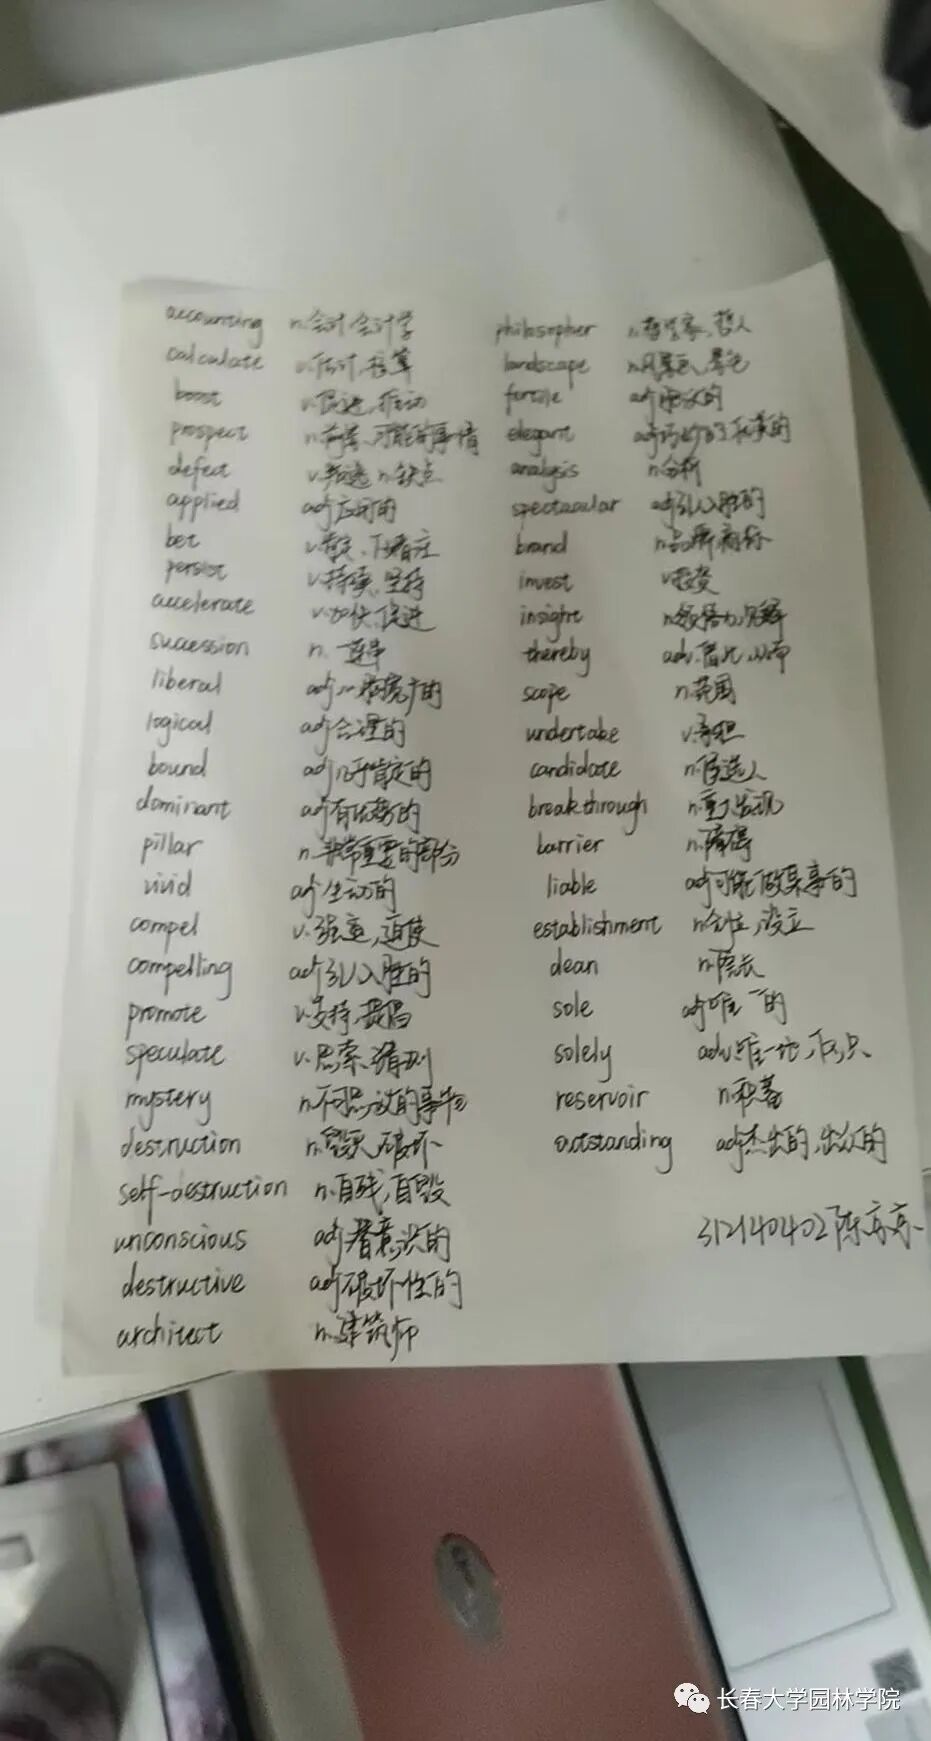 accounting n.会计 会计学
calculate v.估计,打算
boost v.促进,推动
prospect n.前景,可能的事情
defect v.叛逃 n.缺点
applied adj应用的
bet v.敢定,下赌注
persist v.持续,坚持
accelerate v.加快,促进
succession n.一连串
liberal adj心胸宽广的
logical adj合理的
bound adj几乎肯定的
dominant adj有优势的
pillar n.非常重要的部分
vivid adj生动的
compel v.强迫,迫使
compelling adj引人入胜的
promote v.支持,提倡
speculate v.思索,猜测
mystery n.不可思议的事物
destruction n.毁灭,破坏
self-destruction n.自残,自毁
unconscious adj潜意识的
destructive adj破坏性的
architect n.建筑师
philosopher n.哲学家,哲人
landscape n.风景画,景色
fertile adj肥沃的
elegant adj巧妙的
analysis n.分析
spectacular adj引人入胜的
brand n.品牌 商标
invest v.投资
insight n.领悟力,见解
thereby adv.借此,从而
scope n.范围
undertake v.承担
candidate n.候选人
breakthrough n.重大发现
barrier n.障碍
liable adj可能做某事的
establishment n.创立,设立
dean n.院长
sole adj唯一的
solely adv.唯一地,仅只
reservoir n.积蓄
outstanding adj杰出的,出众的
312140402陈
长春大学园林学院